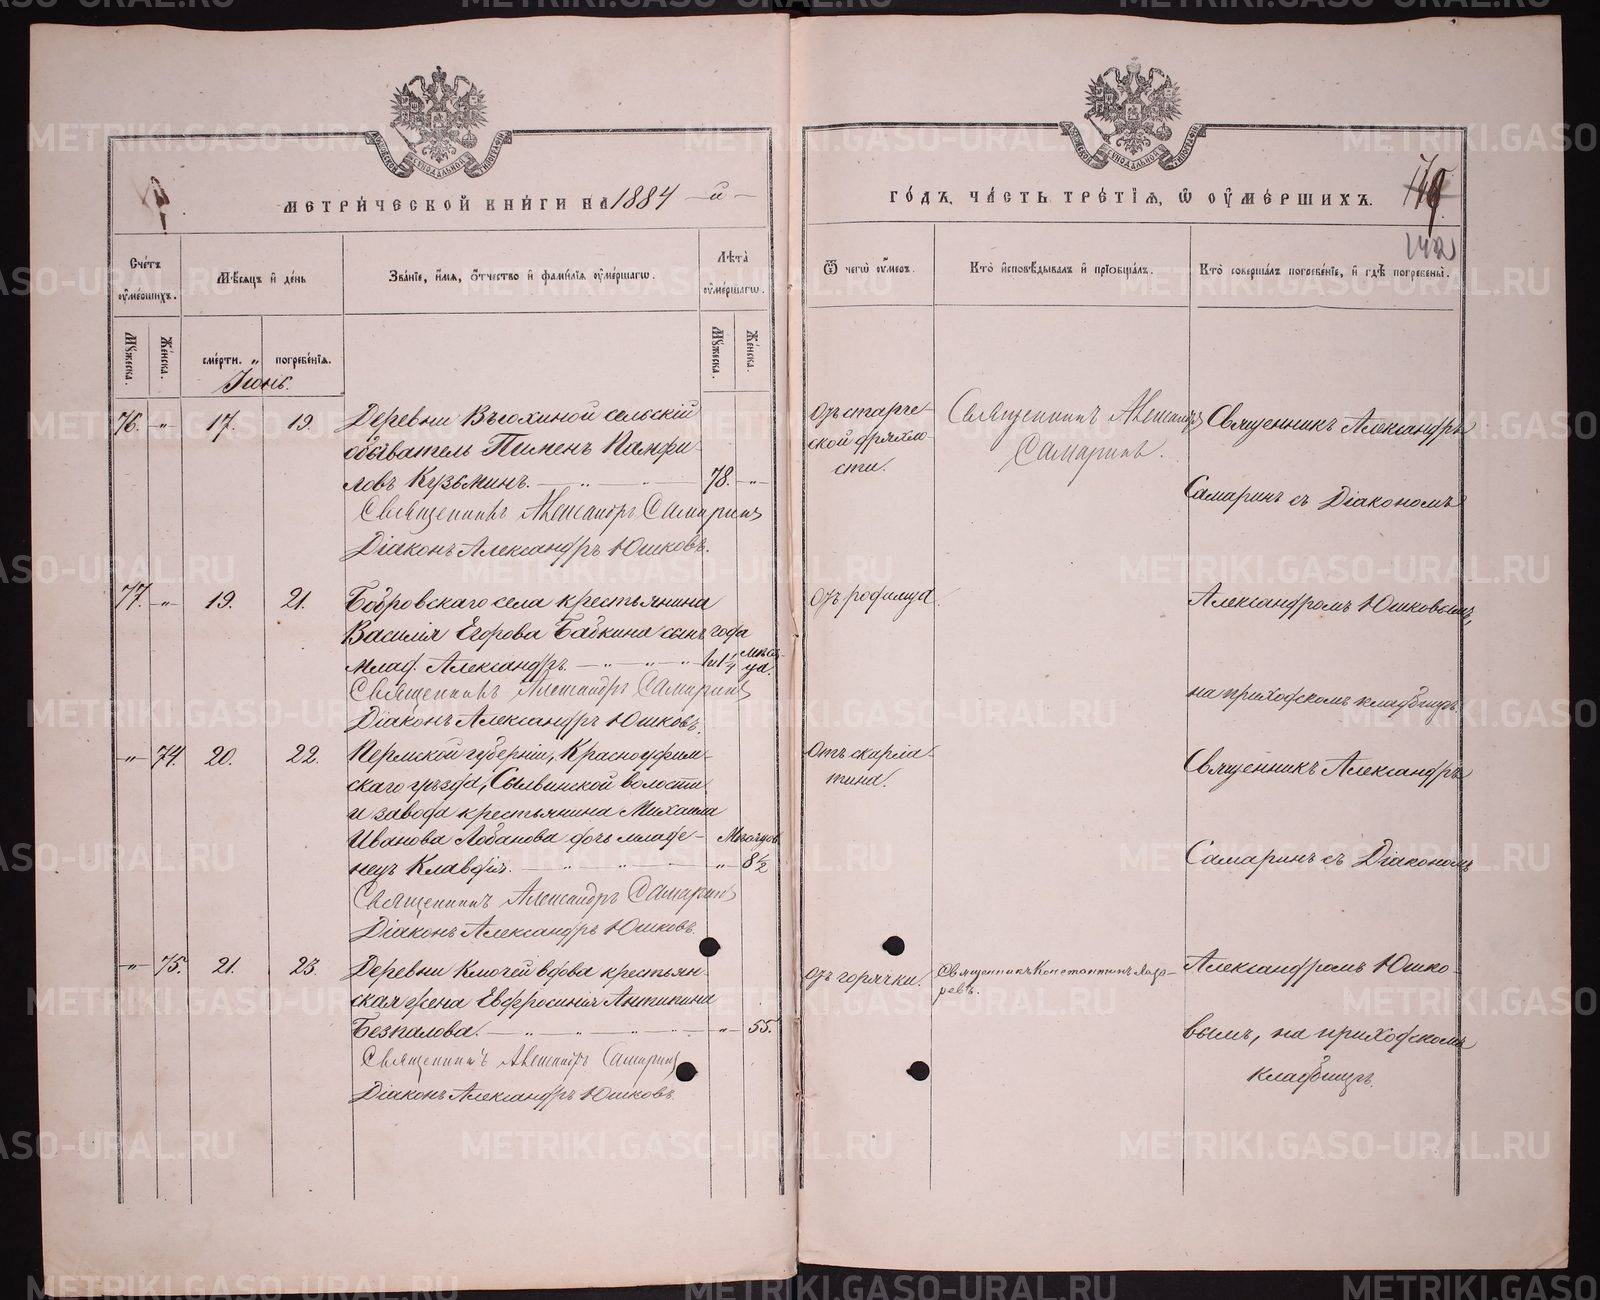 МЕТРИ́ЧЕСКОЙ КНИ́ГИ НА 1884 -й-
ГО́ДЪ, ЧА́СТЬ ТРЕ́ТІѦ, Ѡ ОУМЕ́РШИХЪ.
142
Сче́тъ оумершихъ.
Мѣсяцъ и де́нь
Зва́ніе, и́мя, о́тчество и фами́лія оуме́ршагѡ.
Лѣта̀ оуме́ршагѡ.
Ѿ чегѡ̀ оу́меръ.
Кто̀ исповѣ́дывалъ и пріобща́лъ.
Кто̀ соверша́лъ погребе́ніе, и гдѣ̀ погребены̀.
Мꙋ́жеска.
Же́нска.
сме́рти.
погребе́нія.
Мꙋ́жеска.
Же́нска.
Іюнь.
76. -„- 17. 19. Деревни Вьюхиной сельскій
обыватель Пименъ Памфи-
ловъ Кузьминъ. 78. -„-
Священникъ Александръ Самаринъ
Діаконъ Александръ Юшковъ.
Отъ старче-
ской дряхло-
сти.
Священникъ Александръ
Самаринъ.
Священникъ Александръ
Самаринъ съ Діакономъ
77. -„- 19. 21. Бобровскаго села крестьянина
Василія Егорова Бабкина сынъ года
млад. Александръ. 1 1/4 мѣся-
ца.
Священникъ Александръ Самаринъ
Діаконъ Александръ Юшковъ.
Отъ родимца.
Александромъ Юшковымъ,
на приходскомъ кладбищѣ.
-„- 74. 20. 22. Пермской губерніи, Красноуфим-
скаго уѣзда, Сылвинской волости
и завода крестьянина Михаила
Иванова Лобанова дочь младе- Мѣсяцов
нецъ Клавдія. -„- 8 1/2
Священникъ Александръ Самаринъ
Діаконъ Александръ Юшковъ.
Отъ скарла-
тины.
Священникъ Александръ
Самаринъ съ Діакономъ
-„- 75. 21. 23. Деревни Ключей вдова крестьян-
ская жена Евфросинія Антипина
Безпалова. -„- 55.
Священникъ Александръ Самаринъ
Діаконъ Александръ Юшковъ.
Отъ горячки.
Священникъ Константинъ Лаза-
ревъ.
Александромъ Юшко-
вымъ, на приходскомъ
кладбищѣ.
METRIKI.GASO-URAL.RU